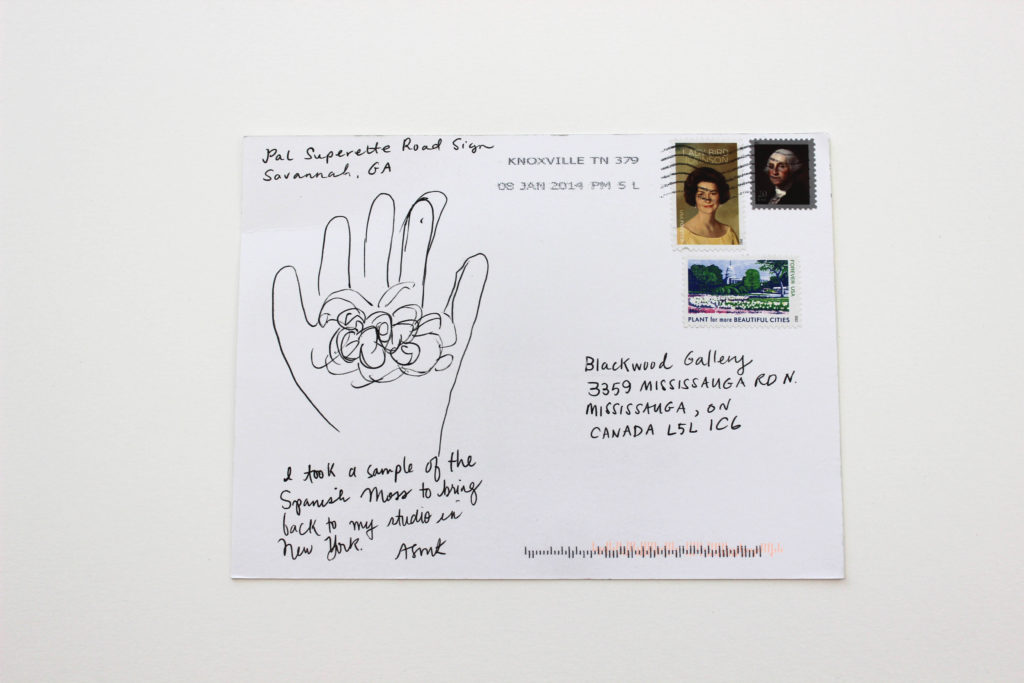 Pal Superette Road Sign
Savannah, GA
KNOXVILLE TN 379
08 JAN 2014 PM 5 L
LADY BIRD
JOHNSON
FOREVER USA
PLANT for more BEAUTIFUL CITIES
Blackwood Gallery
3359 MISSISSAUGA RD N.
MISSISSAUGA, ON
CANADA L5L 1C6
I took a sample of the
Spanish Moss to bring
back to my studio in
New York.